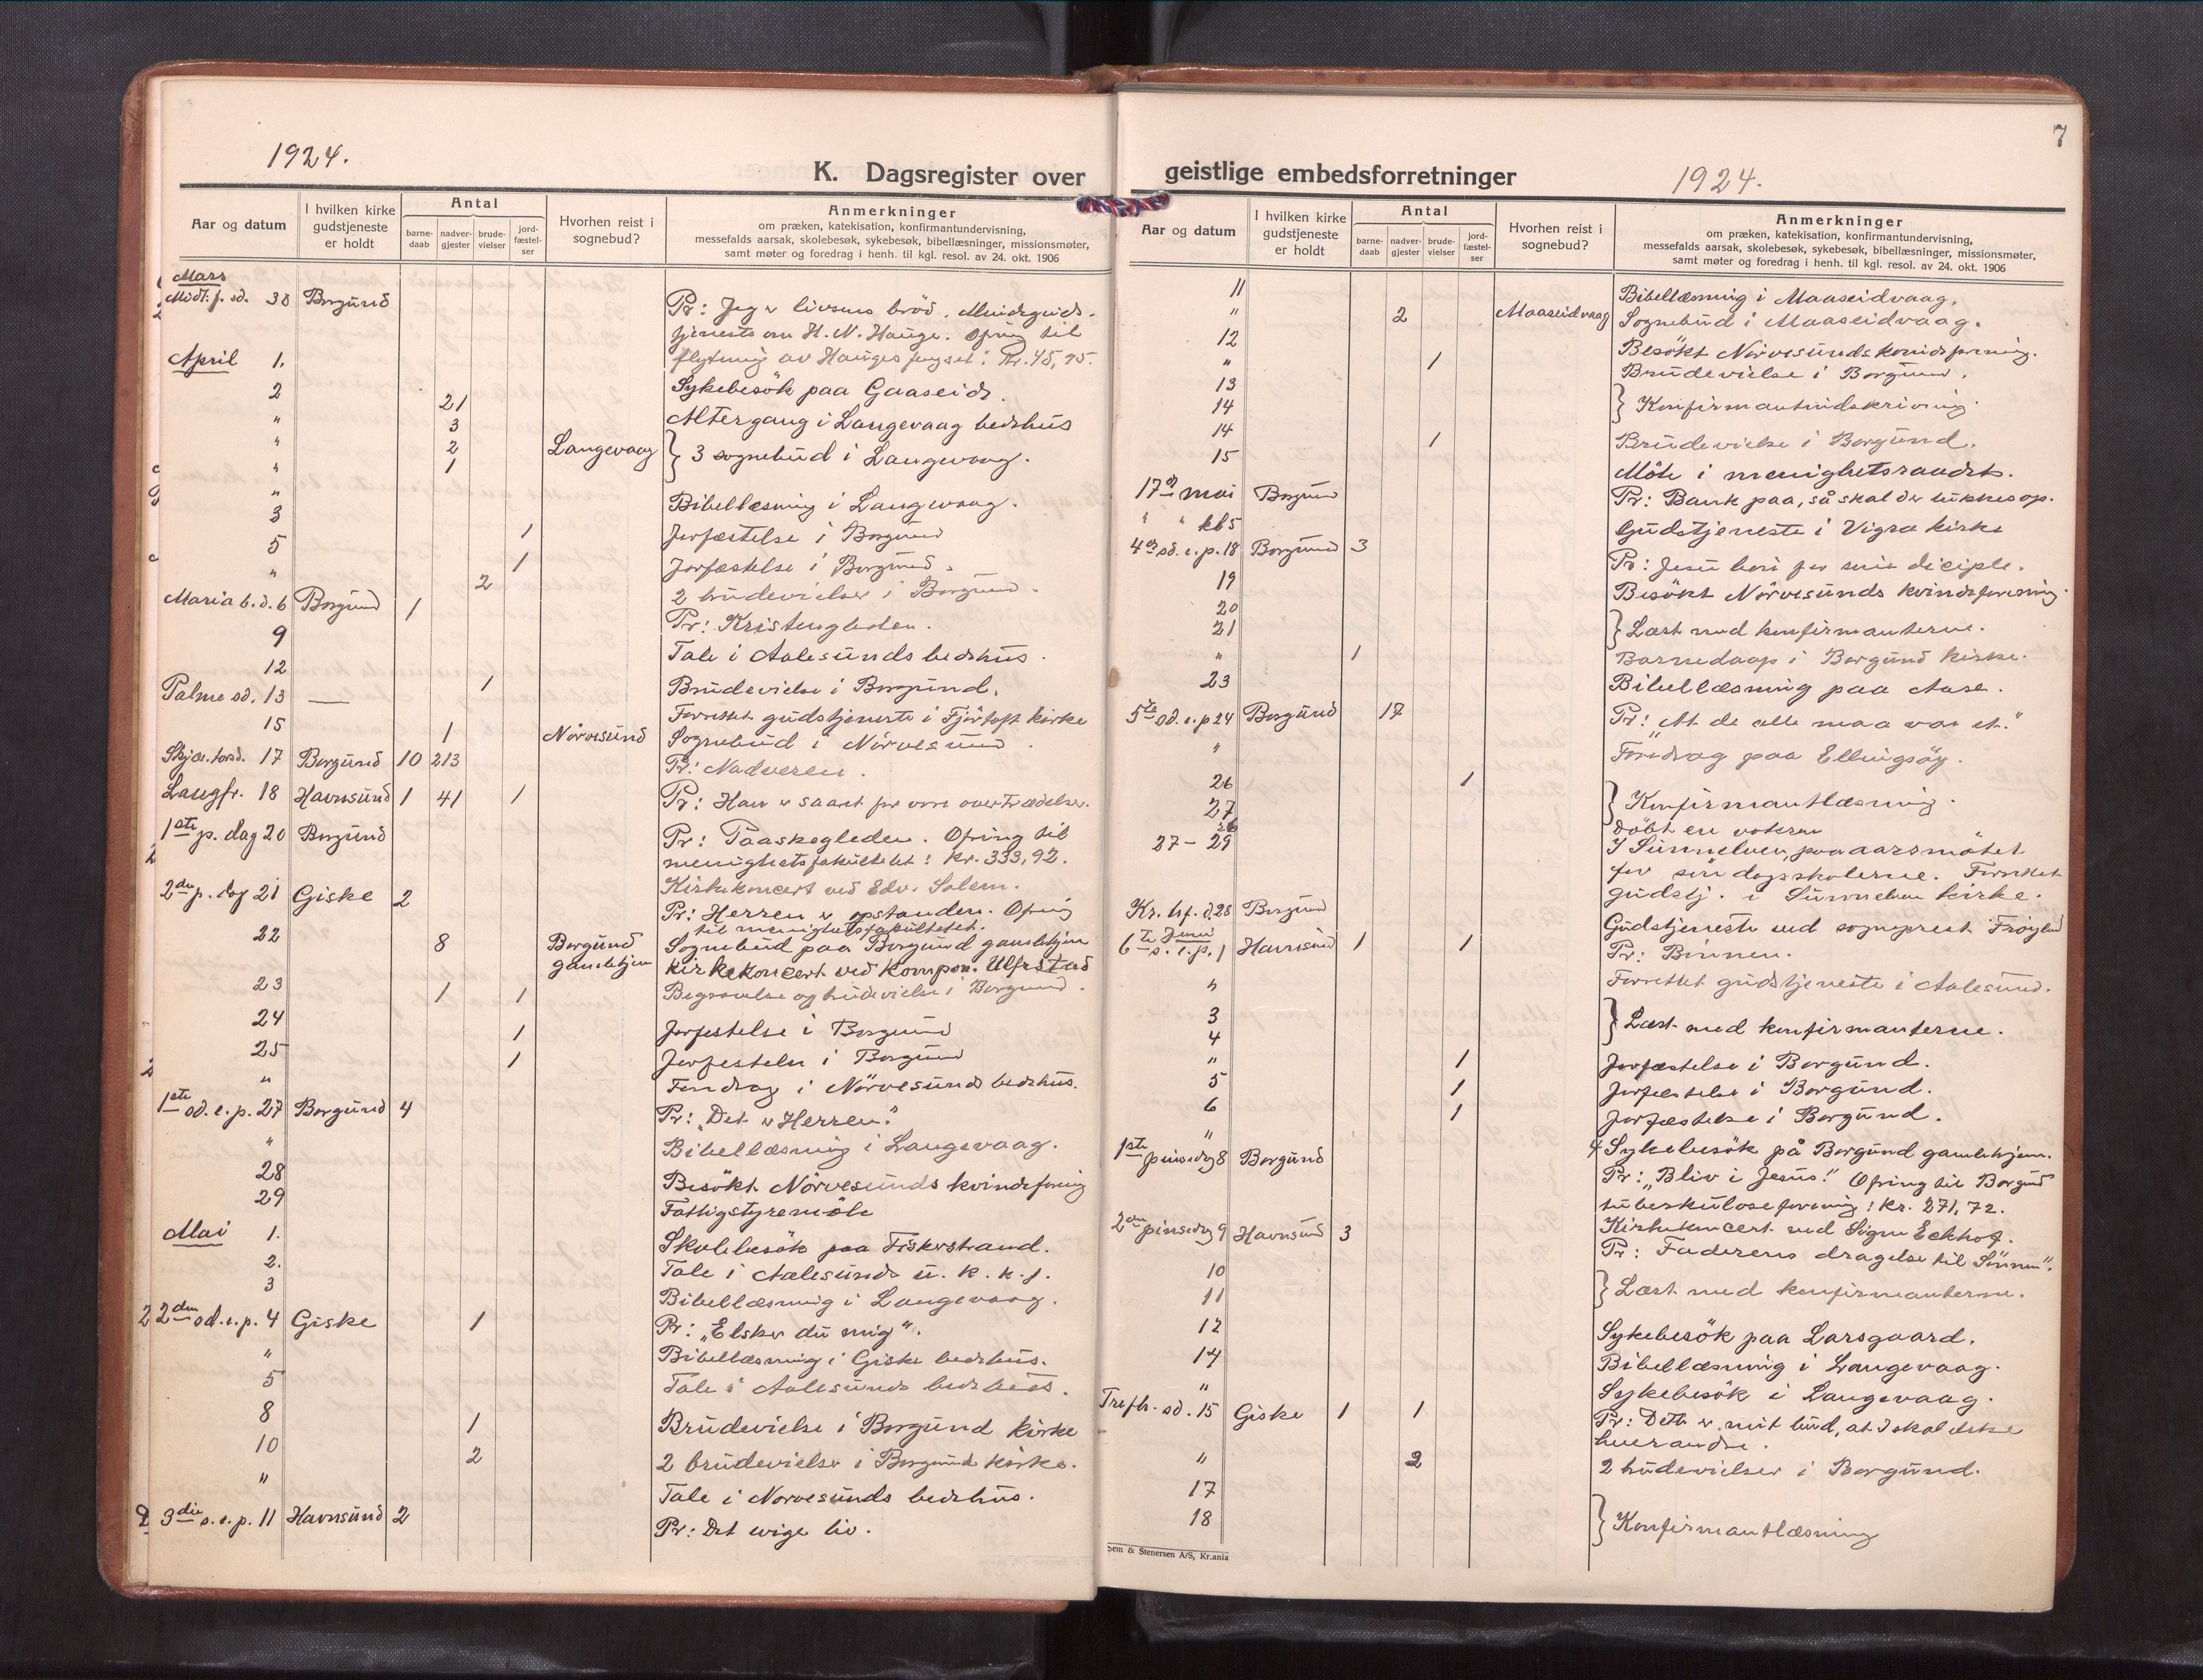 1924.
K. Dagsregister over
Aar og datum
I hvilken kirke gudstjeneste er holdt
Antal
barne-daab
nadver-gjester
brude-vielser
jord-fæstel-ser
Hvorhen reist i sognebud?
Anmerkninger
om præken, katekisation, konfirmantundervisning,
messefalds aarsak, skolebesøk, sykebesøk, bibellæsninger, missionsmøter,
samt møter og foredrag i henh. til kgl. resol. av 24. okt. 1906
Mars
Midf. f. sd. 30 Borgund Pr: Jeg er livsens bröd.
tjeneste om H. N. Hauge. Ofring til
flytning av Hauges
April 1. Sykebesök paa Gaaseid.
2 21 Altergang i Langevaag bedehus
" 3
" 2 Langevaag } 3 sognebud i Langevaag.
" 1
" Bibellæsning i Langevaag.
3 1 Jorfæstelse i Borgund
5 1 Jorfæstelse i Borgund.
" 2 2 brudevielser i Borgund.
Maria b. d. 6 Borgund 1 Pr: Kristengleden.
9 Tale i Aalesunds bedehus.
12 1 Brudevielse i Borgund.
Palme sd. 13 — Forrettet gudstjeneste i Fjörtoft kirke
15 1 Nörvesund Sognebud i Nörvesund.
Skjær. torsd. 17 Borgund 10 213 Pr: Nadveren.
Langfr. 18 Havnsund 1 41 1 Pr: Han er saaret for vore overtrædelser.
1ste p. dag 20 Borgund Pr: Paaskegleden. Ofring til
menighetsfakultetet: kr. 333,92.
Kirkekoncert ved Edv. Solem.
2den p. dag 21 Giske 2 Pr: Herren er opstanden. Ofring
til menighetsfakultetet.
22 8 Borgund gamlehjem Sognebud paa Borgund gamlehjem
Kirkekoncert ved Kompon. Ulfrstad
23 1 1 Begravelse og brudevielse i Borgund.
24 1 Jorfestelse i Borgund
25 1 Jorfestelse i Borgund
" Foredrag i Nörvesunds bedehus.
1ste sd. e. p. 27 Borgund 4 Pr: „Det er Herren".
" Bibellæsning i Langevaag.
28 Besökt Nörvesunds kvindeforening
29 Fattigstyremöte
Mai 1. Skolebesök paa Fiskerstrand.
2. Tale i Aalesunds u. k. k. f.
3 Bibellæsning i Langevaag.
2den sd. e. p. 4 Giske 1 Pr: „Elsker du mig".
" Bibellæsning i Giske bedehus.
5 Tale i Aalesunds bedehus.
8 1 Brudevielse i Borgund kirke
10 2 2 brudevielser i Borgund kirke.
" Tale i Norvesunds bedehus.
3die s. e. p. 11 Havnsund 2 Pr: Det evige liv.
7
geistlige embedsforretninger
1924.
Aar og datum
I hvilken kirke gudstjeneste er holdt
Antal
barne-daab
nadver-gjester
brude-vielser
jord-fæstel-ser
Hvorhen reist i sognebud?
Anmerkninger
om præken, katekisation, konfirmantundervisning,
messefalds aarsak, skolebesøk, sykebesøk, bibellæsninger, missionsmøter,
samt møter og foredrag i henh. til kgl. resol. av 24. okt. 1906
11 Bibellæsning i Maaseidvaag.
" 2 Maaseidvaag Sognebud i Maaseidvaag.
12 Besökt Nörvesunds kvindeforening.
" 1 Brudevielse i Borgund.
13
14 } Konfirmantindskrivning.
14 1 Brudevielse i Borgund.
15 Möte i menighetsraadet.
17de mai Borgund Pr: Bank paa, så skal der lukkes op.
" " kl 5 Gudstjeneste i Vigra kirke
4de sd. e. p. 18 Borgund 3 Pr: Jesu bön for sine diciple.
19 Besökt Nörvesunds kvindeforening.
20
21 } Læst med konfirmanterne.
" 1 Barnedaap i Borgund kirke.
23 Bibellæsning paa Aase.
5te sd. e. p 24 Borgund 17 Pr: „At de alle maa være et."
" Foredrag paa Ellingsöy.
26 1
27 } Konfirmantlæsning.
döbt en voksen
27 – 29 I Sunnelven, paa aarsmötet
for söndagsskolerne. Forrettet
gudstj. i Sunnelven kirke.
Kr. hf. d. 28 Borgund Gudstjeneste ved sogneprest Fröyland
Juni
6te s. e. p. 1 Havnsund 1 1 Pr: Bönnen.
" Forrettet gudstjeneste i Aalesund.
3
4 } Læst med konfirmanterne.
" 1 Jorfæstelse i Borgund.
5 1 Jorfæstelse i Borgund.
6 1 Jorfæstelse i Borgund.
" 4 Sykebesök på Borgund gamlehjem.
1ste pinsedag 8 Borgund Pr: „Bliv i Jesus!" Ofring til Borgund
tuberkuloseforening: kr. 271,72.
Kirkekoncert ved Signe Eckhof.
2den pinsedag 9 Havnsund 3 Pr: Faderens dragelse til Sönnen".
10
11 } Læst med konfirmanterne.
12 Sykebesök paa Larsgaard.
14 Bibellæsning i Langevaag.
" Sykebesök i Langevaag.
Trefh. sd. 15 Giske 1 1 Pr: Dette er mit bud, at I skal elske
hverandre.
" 2 2 brudevielser i Borgund.
17
18 } Konfirmantlæsning
Sem & Stenersen A/S, Kr.ania